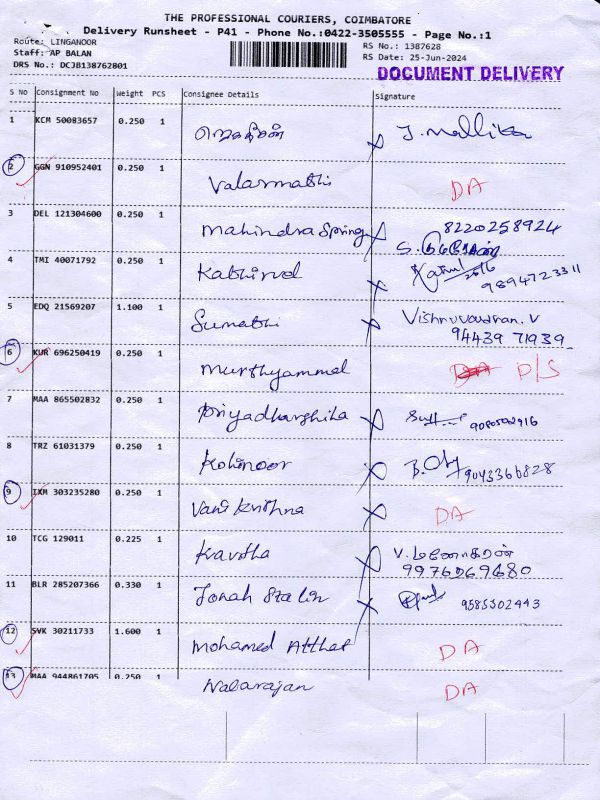 THE PROFESSIONAL COURIERS, COIMBATORE
Delivery Runsheet - P41 - Phone No.:0422-3505555 - Page No.:1
Route: LINGANOOR
Staff: AP BALAN
DRS No.: DCJB138762801
RS No.: 1387628
RS Date: 25-Jun-2024
DOCUMENT DELIVERY
S NO Consignment No Weight PCS Consignee Details Signature
1 KCM 50083657 0.250 1 J. Mallika
2 GGN 910952401 0.250 1 Valarmathi DA
3 DEL 121304600 0.250 1 Mahindra Spring 8220258924
4 TMI 40071792 0.250 1 Kathirvel 9894723311
5 EDQ 21569207 1.100 1 Sumathi Vishnuvardhan. V
94439 71939
6 KUR 696250419 0.250 1 Murthyammal D/S
7 MAA 865502832 0.250 1 Priyadharshila 9080502916
8 TRZ 61031379 0.250 1 Kohinoor 9043366828
9 IXM 303235280 0.250 1 Vani Krishna DA
10 TCG 129011 0.225 1 Kavitha V. மனோகரன்
9976269680
11 BLR 285207366 0.330 1 Jonah Stalin 9585302443
12 SVK 30211733 1.600 1 Mohamed Atthar DA
13 MAA 944861705 0.250 1 Nalarajan DA